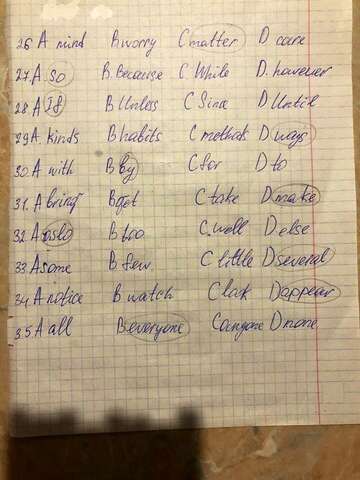 26 A mind B worry C matter D care
27. A so B. Because C While D. however
28 A If B Unless C Since D Until
29 A. kinds B habits C methods D ways
30. A with B by C for D to
31. A bring B get C take D make
32. A also B too C. well D else
33 A some B few C little D several
34. A notice B watch C look D appear
35 A all B everyone C anyone D none